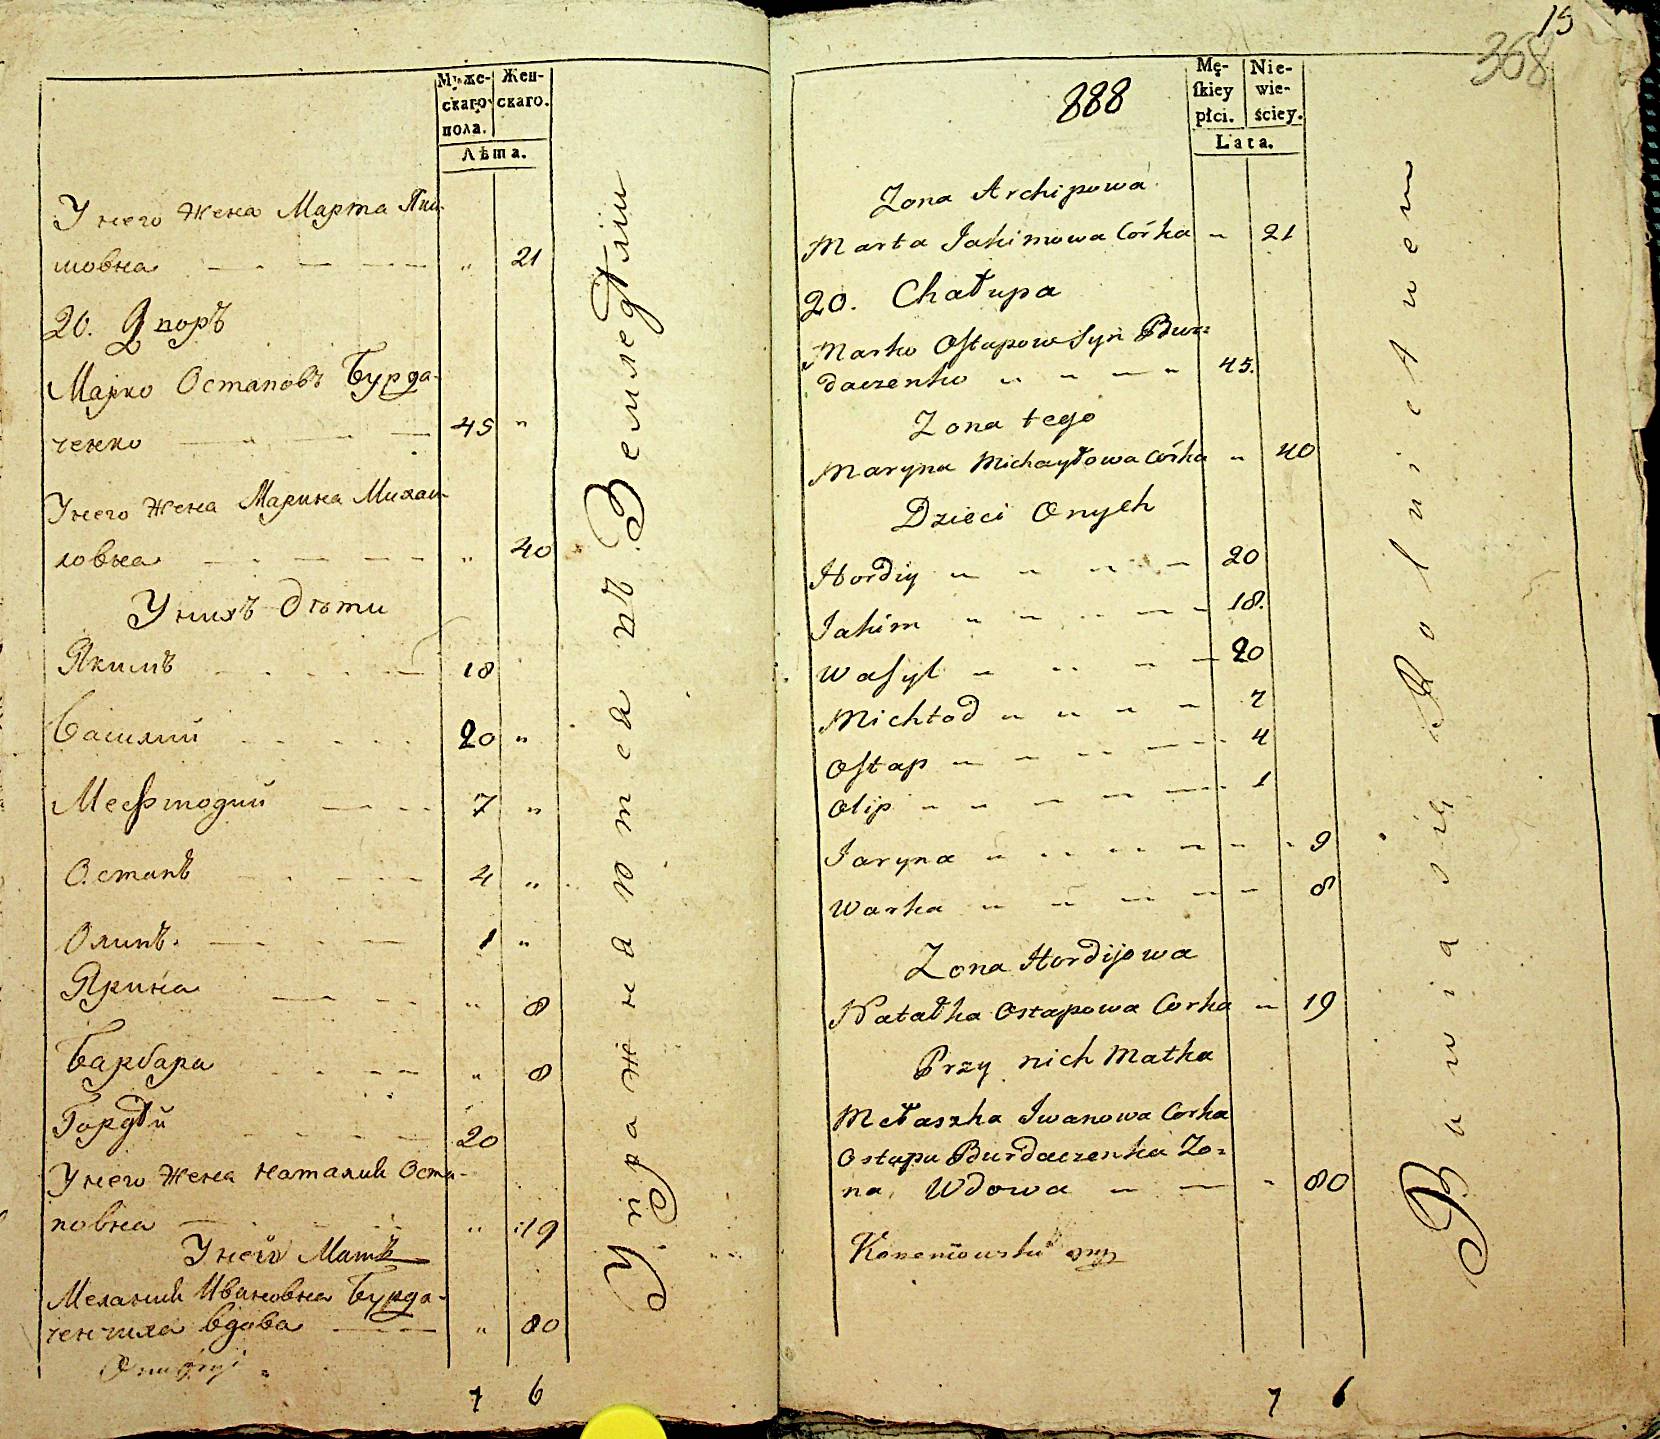 Муже-
скаго
пола.
Жен-
скаго.
Лѣта.
У него жена Марта Яки-
мовна „ 21
20. Дворъ
Марко Остаповъ Бурда-
ченко 45 „
У него жена Марина Михаи-
ловна „ 40
У нихъ дѣти
Якимъ 18
Василий 20 „
Мефтодий 7 „
Остапъ 4 „
Олипъ. 1 „
Ярина „ 8
Барбара „ 8
Гордѣй 20
У него жена Наталия Оста-
повна „ 19
У него Матъ
Мелания Ивановна Бурда-
ченчиха вдова „ 80
7 6
Упражнаются въ Земледѣлии
15
368
888
Mę-
ſkiey
płci.
Nie-
wie-
ściey.
Lata.
Zona Archipowa
Marta Jakimowa Córka „ 21
20. Chałupa
Marko Oſtapow Syn Bur=
daczenko 45.
Zona tego
Maryna Michayłowa Córka „ 40
Dzieci Onych
Hordiy 20
Jakim 18.
Waſyl 20
Michtod 7
Oſtap 4
Olip 1
Jaryna 9
Warka 8
Zona Hordijowa
Natałka Ostapowa Corka 19
Przy nich Matka
Mełaszka Iwanowa Corka
Ostapa Burdaczenka Zo=
na, Wdowa 80
7 6
Bawia się Rolnictwem